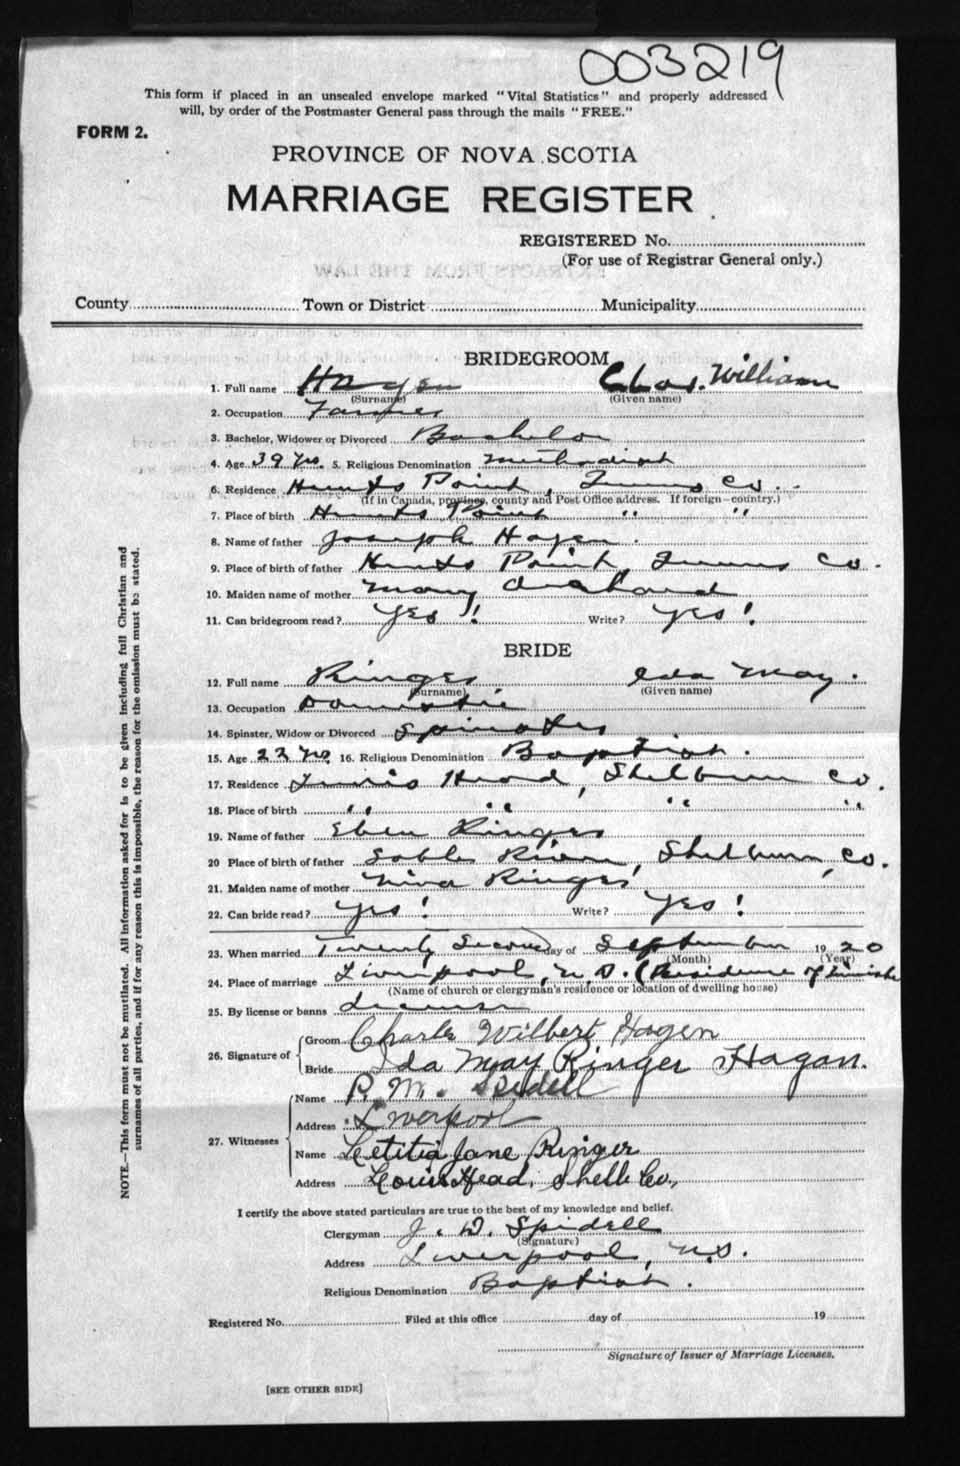 003219
This form if placed in an unsealed envelope marked "Vital Statistics" and properly addressed
will, by order of the Postmaster General pass through the mails "FREE."
FORM 2.
PROVINCE OF NOVA SCOTIA
MARRIAGE REGISTER
REGISTERED No.
(For use of Registrar General only.)
County Town or District Municipality
BRIDEGROOM
1. Full name Hagen Chas. William
(Surname) (Given name)
2. Occupation Farmer
3. Bachelor, Widower or Divorced Bachelor
4. Age 39 yrs. 5. Religious Denomination Methodist
6. Residence Hunts Point, Queens Co.
(If in Canada, province, county and Post Office address. If foreign—country.)
7. Place of birth Hunts Point " "
8. Name of father Joseph Hagen.
9. Place of birth of father Hunts Point, Queens Co.
10. Maiden name of mother Mary
11. Can bridegroom read? Yes! Write? Yes!
BRIDE
12. Full name Ringer Ida May.
(Surname) (Given name)
13. Occupation Domestic
14. Spinster, Widow or Divorced Spinster
15. Age 22 yrs. 16. Religious Denomination Baptist.
17. Residence Louis Head, Shelburne Co.
18. Place of birth " " " "
19. Name of father Eben Ringer
20 Place of birth of father Sable River, Shelburne Co.
21. Maiden name of mother Ringer
22. Can bride read? Yes! Write? Yes!
23. When married Twenty Second day of September 1920
(Month) (Year)
24. Place of marriage Liverpool, N.S. (Residence of
(Name of church or clergyman's residence or location of dwelling house)
25. By license or banns License
26. Signature of
Groom Charle Wilbert Hagen
Bride Ida May Ringer Hagan.
27. Witnesses
Name R. M. Spidell
Address Liverpool
Name Letitia Jane Ringer
Address Louis Head, Shelb Co.,
I certify the above stated particulars are true to the best of my knowledge and belief.
Clergyman J. D. Spidell
(Signature)
Address Liverpool, N.S.
Religious Denomination Baptist.
Registered No. Filed at this office day of 19
Signature of Issuer of Marriage Licenses.
[SEE OTHER SIDE]
NOTE.—This form must not be mutilated. All information asked for is to be given including full Christian and
surnames of all parties, and if for any reason this is impossible, the reason for the omission must be stated.